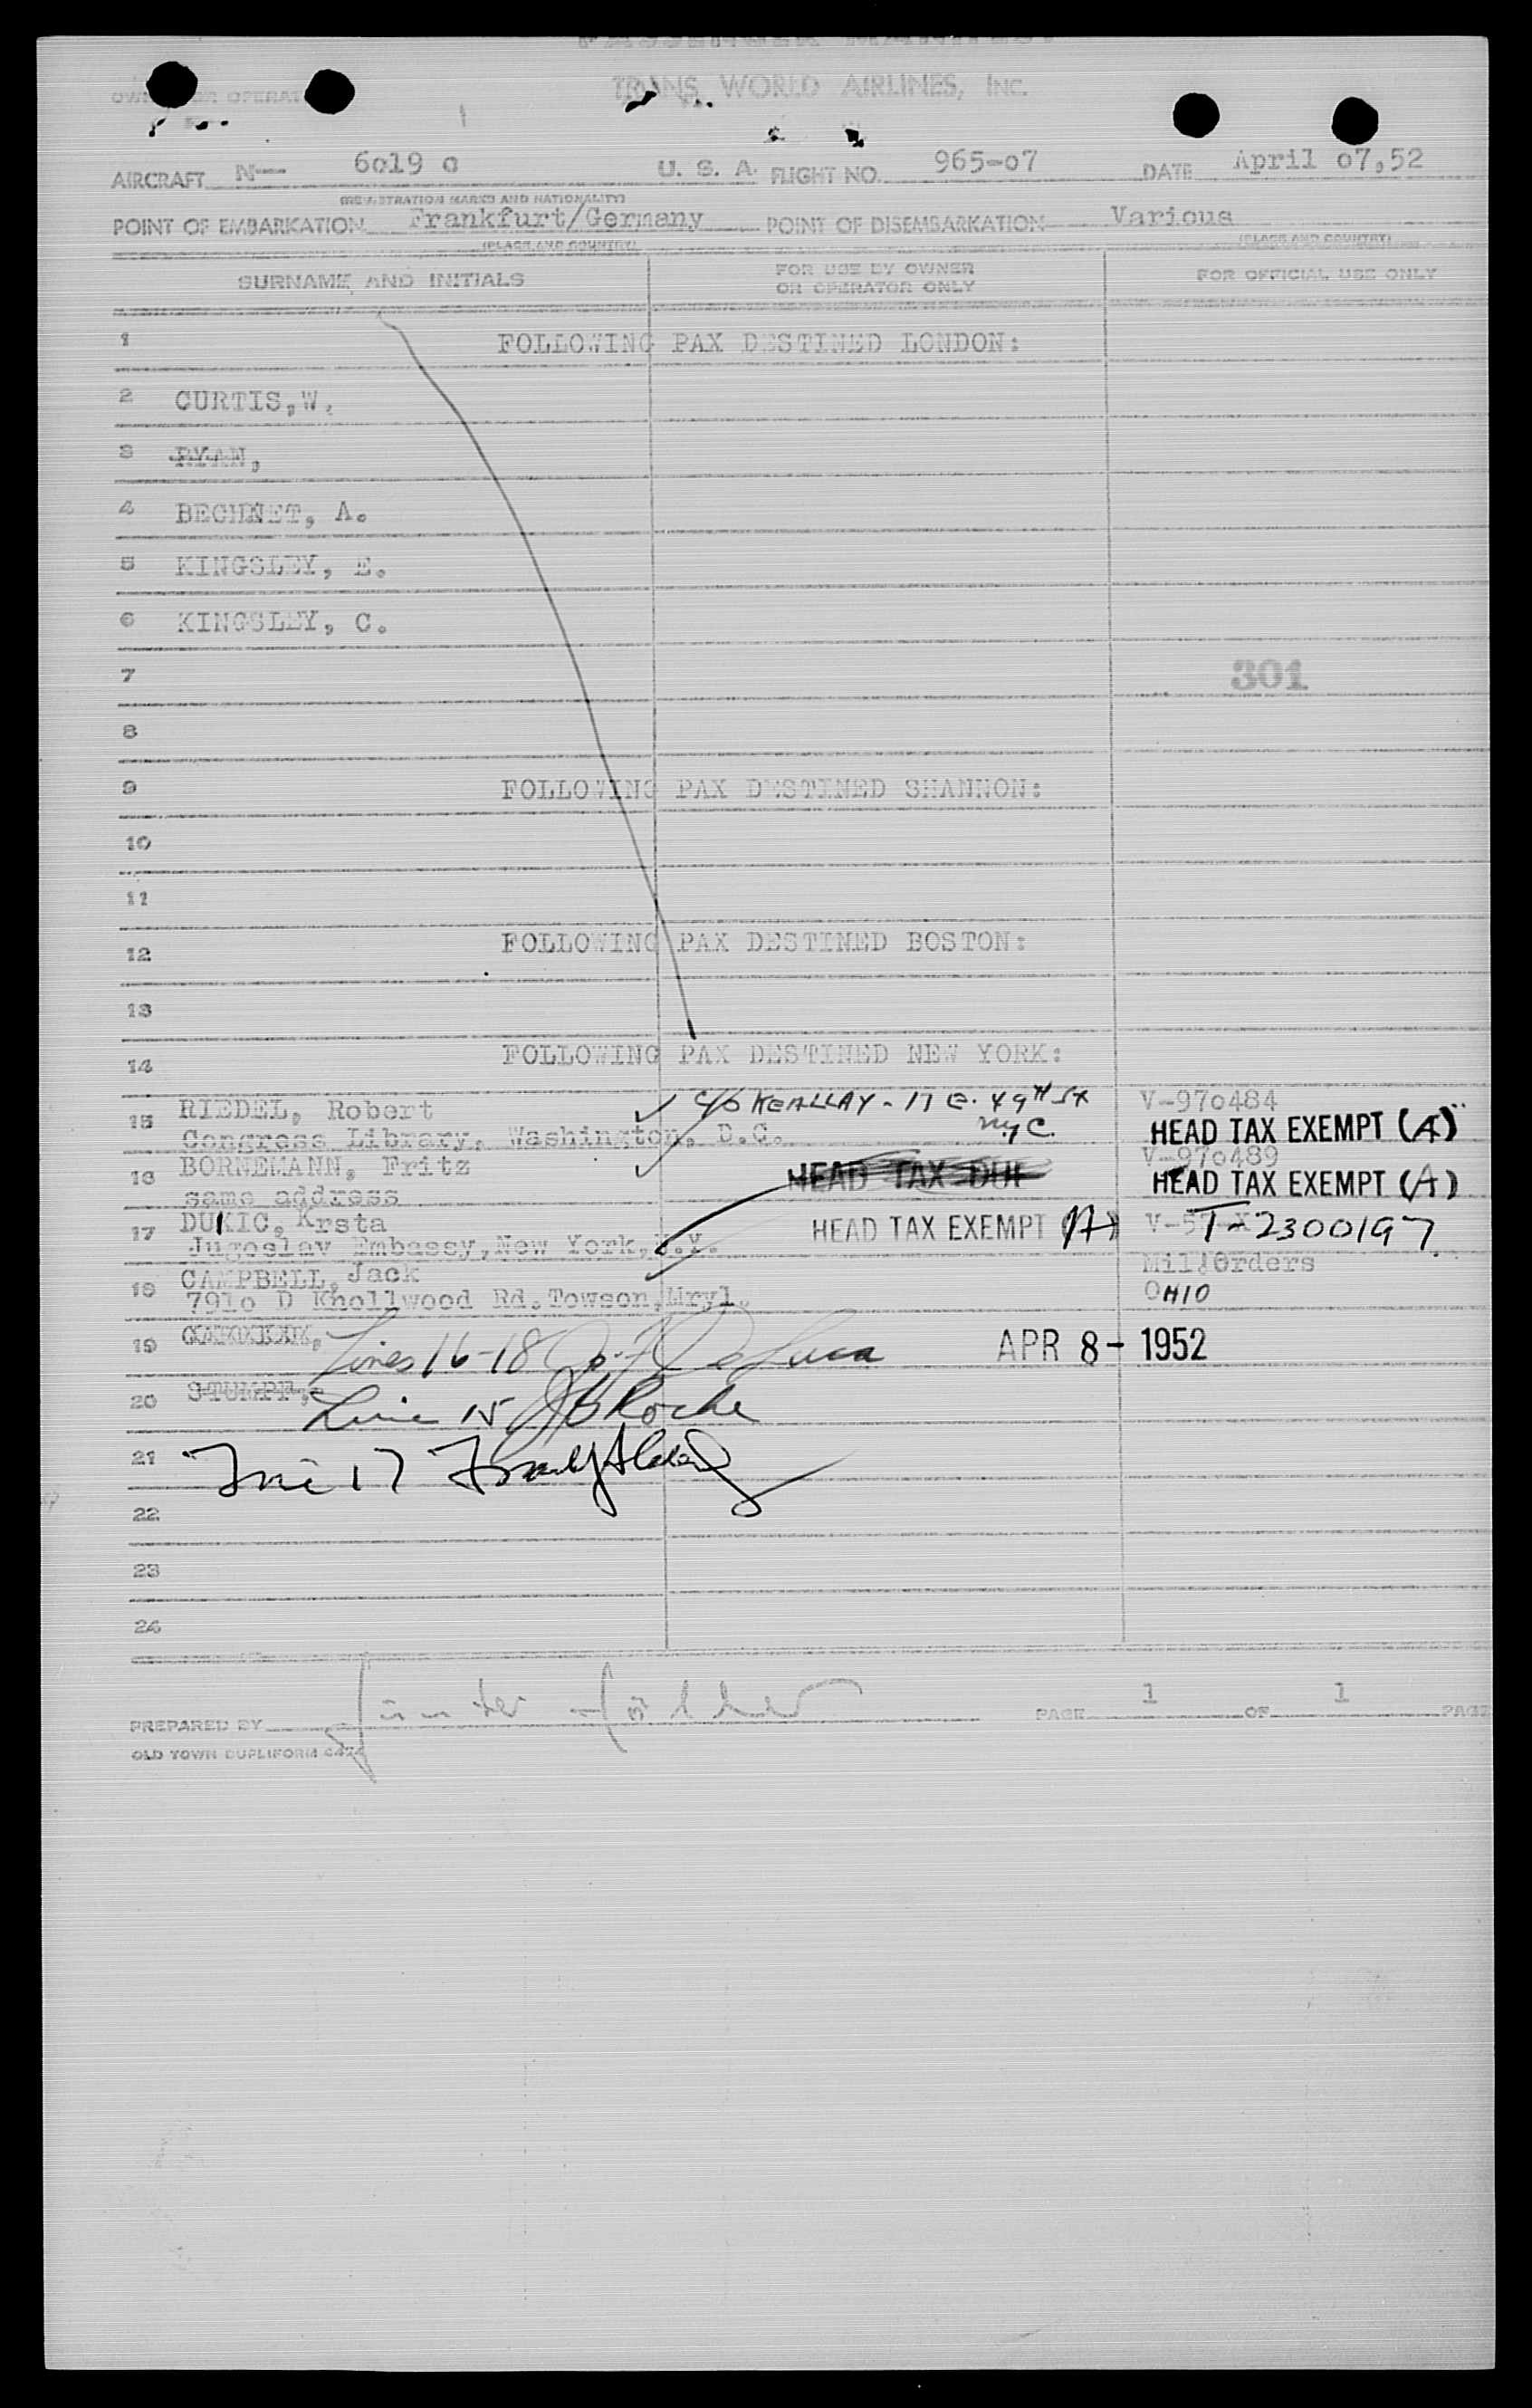 PASSENGER MANIFEST
TRANS WORLD AIRLINES, INC.
OWNER OR OPERATOR
AIRCRAFT N— 6o19 c U. S. A. FLIGHT NO. 965-o7 DATE April o7,52
(REGISTRATION MARKS AND NATIONALITY)
POINT OF EMBARKATION Frankfurt/Germany POINT OF DISEMBARKATION Various
(PLACE AND COUNTRY) (PLACE AND COUNTRY)
SURNAME AND INITIALS FOR USE BY OWNER OR OPERATOR ONLY FOR OFFICIAL USE ONLY
1 FOLLOWING PAX DESTINED LONDON:
2 CURTIS,W.
3 RYAN,
4 BECHNET, A.
5 KINGSLEY, E.
6 KINGSLEY, C.
7 301
8
9 FOLLOWING PAX DESTINED SHANNON:
10
11
12 FOLLOWING PAX DESTINED BOSTON:
13
14 FOLLOWING PAX DESTINED NEW YORK:
15 RIEDEL, Robert c/o KEALLAY - 17 E. 49th St V-97o484
Congress Library, Washington, D.C. NYC HEAD TAX EXEMPT (A)
16 BORNEMANN, Fritz V-97o489
same address HEAD TAX DUE HEAD TAX EXEMPT (A)
17 DUKIC, Krsta HEAD TAX EXEMPT (A) T-2300197
Jugoslav Embassy,New York,N.Y.
18 CAMPBELL, Jack Mil.Orders
791o D Knollwood Rd.Towson,Mryl. OHIO
19 Lines 16-18 APR 8 - 1952
20 STUMPF, Line 15 Roche
21 Line 17
22
23
24
PREPARED BY Günter PAGE 1 OF 1 PAGE
OLD TOWN DUPLIFORM